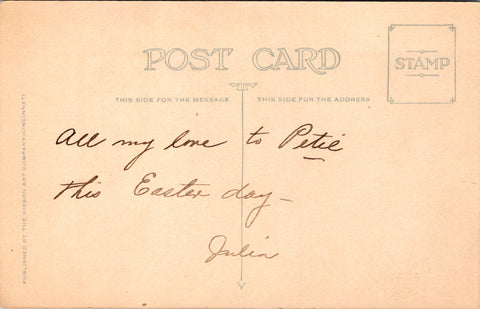 POST CARD
STAMP
THIS SIDE FOR THE MESSAGE
THIS SIDE FOR THE ADDRESS
All my love to Petie
this Easter day—
Julia
PUBLISHED BY THE GIBSON ART COMPANY, CINCINNATI